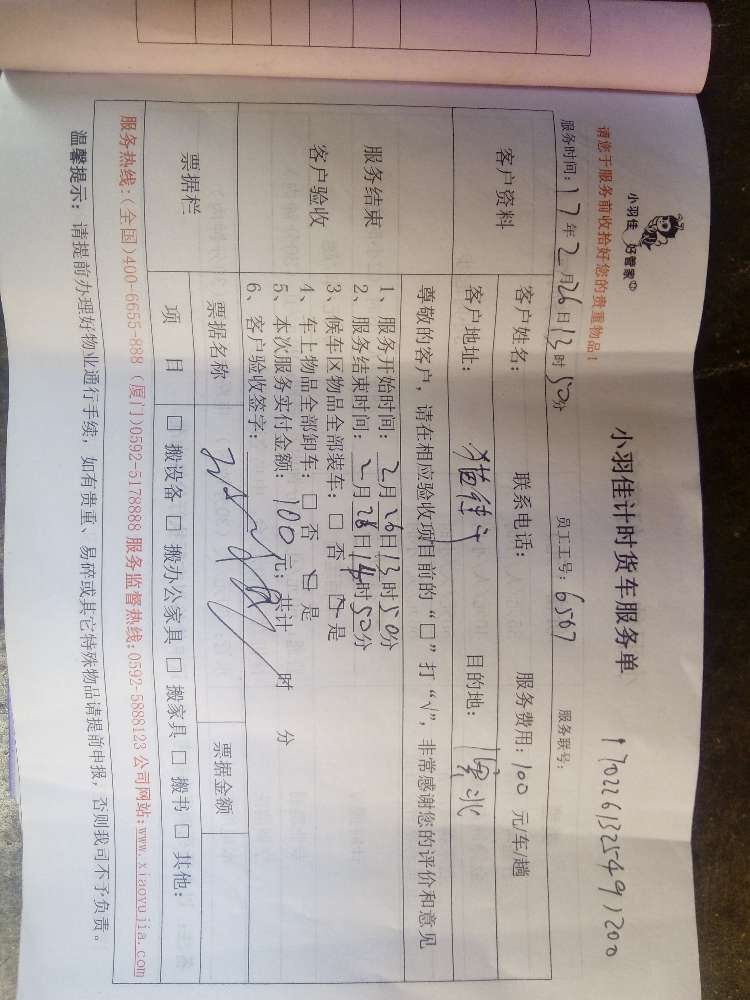 小羽佳 好管家
小羽佳计时货车服务单
1702261325491200
请您于服务前收拾好您的贵重物品！
服务时间：17年2月26日13时50分 员工工号：6567 服务联号：
客户资料
客户姓名： 联系电话： 服务费用：100 元/车/趟
客户地址： 目的地：
服务结束
客户验收
尊敬的客户，请在相应验收项目前的“□”打“√”，非常感谢您的评价和意见
1、服务开始时间：2月26日13时50分
2、服务结束时间：2月26日14时50分
3、候车区物品全部装车：□ 否 □ 是
4、车上物品全部卸车：□ 否 □ 是
5、本次服务实付金额：100元；共计 时 分
6、客户验收签字：
票据栏
票据名称 票据金额
项 目 □ 搬设备 □ 搬办公家具 □ 搬家具 □ 搬书 □ 其他：
服务热线：(全国)400-6655-888 (厦门)0592-5178888 服务监督热线：0592-5888123 公司网站：www.xiaoyujia.com
温馨提示：请提前办理好物业通行手续，如有贵重、易碎或其它特殊物品请提前申报，否则我司不予负责。